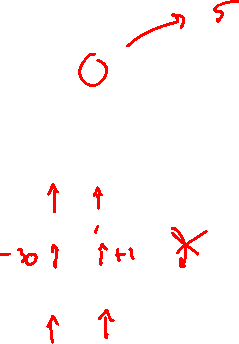 5
-30 +1